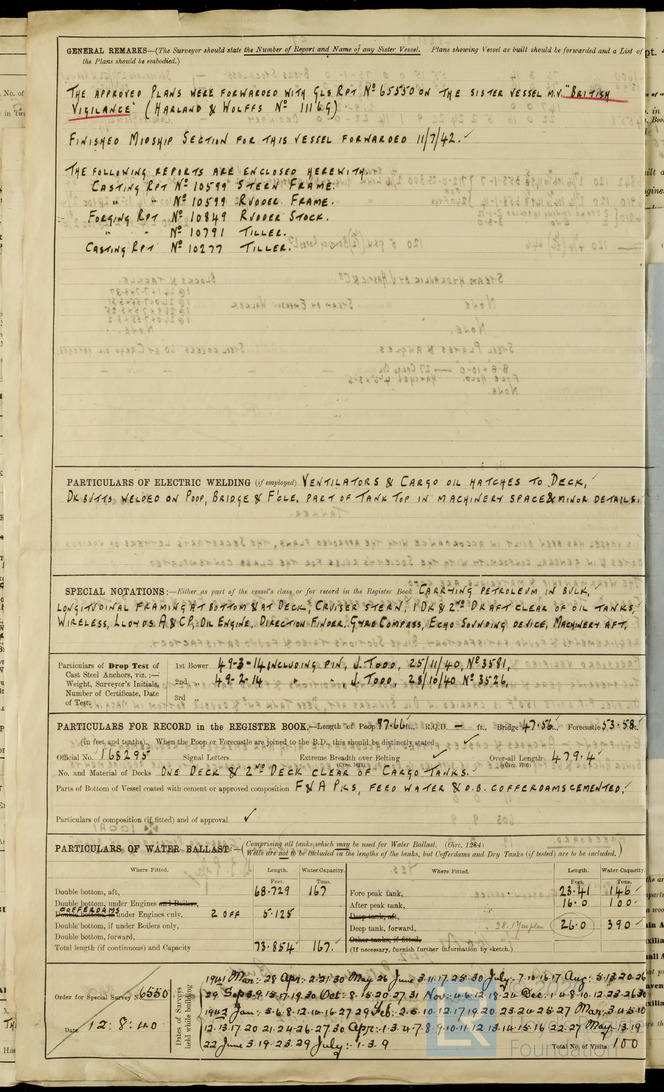 GENERAL REMARKS—(The Surveyor should state the Number of Report and Name of any Sister Vessel. Plans showing Vessel as built should be forwarded and a List of
the Plans should be embodied.)
THE APPROVED PLANS WERE FORWARDED WITH GLS RPT No 65550 ON THE SISTER VESSEL M.V. "BRITISH
VIGILANCE" (HARLAND & WOLFFS No 1116G)
FINISHED MIDSHIP SECTION FOR THIS VESSEL FORWARDED 11/7/42.
THE FOLLOWING REPORTS ARE ENCLOSED HEREWITH.
CASTING RPT No 10599 STERN FRAME.
" " No 10599 RUDDER FRAME.
FORGING RPT No 10849 RUDDER STOCK.
" " No 10791 TILLER.
CASTING RPT No 10277 TILLER.
PARTICULARS OF ELECTRIC WELDING (if employed) VENTILATORS & CARGO OIL HATCHES TO DECK,
DK BUTTS WELDED ON POOP, BRIDGE & F'CLE. PART OF TANK TOP IN MACHINERY SPACE & MINOR DETAILS.
SPECIAL NOTATIONS:—Either as part of the vessel's class or for record in the Register Book CARRYING PETROLEUM IN BULK,
LONGITUDINAL FRAMING AT BOTTOM & AT DECK, CRUISER STERN, 1 DK & 2ND DRAFT CLEAR OF OIL TANKS,
WIRELESS, LLOYDS A & CP, OIL ENGINE, DIRECTION FINDER, GYRO COMPASS, ECHO SOUNDING DEVICE, MACHINERY AFT,
Particulars of Drop Test of 1st Bower 49-3-14 INCLUDING PIN, J. TODD, 25/11/40, No 3581,
Cast Steel Anchors, viz.:—
Weight, Surveyor's Initials, 2nd " 49-2-14 " " , J. TODD, 28/10/40 No 3526,
Number of Certificate, Date
of Test. 3rd "
PARTICULARS FOR RECORD in the REGISTER BOOK.—Length of Poop 97.66 ft., R.Q.D. — ft., Bridge 47.56 Forecastle 53.58 ft.
(in feet and tenths). When the Poop or Forecastle are joined to the B.D., this should be distinctly stated
Official No. 168295 Signal Letters Extreme Breadth over Belting Over-all Length 479.4
No. and Material of Decks ONE DECK & 2ND DECK CLEAR OF CARGO TANKS.
Parts of Bottom of Vessel coated with cement or approved composition F & A PKS, FEED WATER & D.B. COFFERDAMS CEMENTED.
Particulars of composition (if fitted) and of approval ✓
PARTICULARS OF WATER BALLAST—(Comprising all tanks, which may be used for Water Ballast. (Circ. 1284)
Wells are not to be included in the lengths of the tanks, but Cofferdams and Dry Tanks (if tested) are to be included.)
Where Fitted. Length. Water Capacity. Where Fitted. Length. Water Capacity.
Feet. Tons. Feet. Tons.
Double bottom, aft, 68.729 167 Fore peak tank, 23.41 146
Double bottom, under Engines and Boilers, After peak tank, 16.0 100
COFFERDAMS
Double bottom, if under Engines only, 2 OFF 5.125 Deep tank, aft,
Double bottom, if under Boilers only, Deep tank, forward, 26.0 390
Double bottom, forward, Other tanks, if fitted,
Total length (if continuous) and Capacity 73.854 167. (If necessary, furnish further information by sketch.)
Order for Special Survey No. 6550
Date 12.8.40
Dates of Surveys
held while building
1941 Mar: 28 Apr: 2.21.30 May 26 June 3.11.17.25.30 July: 7.10.16.17 Aug: 5.13.20.26
29 Sep 3.9.15.17.19.30 Oct: 8.15.20.27.31 Nov: 4.6.12.18.24 Dec: 1.4.8.10.12.23.26.30
1942 Jan: 5.6.8.12.14.16.27.29 Feb: 2.5.10.12.17.19.20.23.24.25.27 Mar: 3.4.5.10
12.13.17.20.21.24.26.27.30 Apr: 1.3.4.7.8.9.10.11.12.13.14.15.16.22.27 May: 13.19
22 June 3.19.23.29 July: 1.3.9
Total No. of Visits 100
LR
Foundation